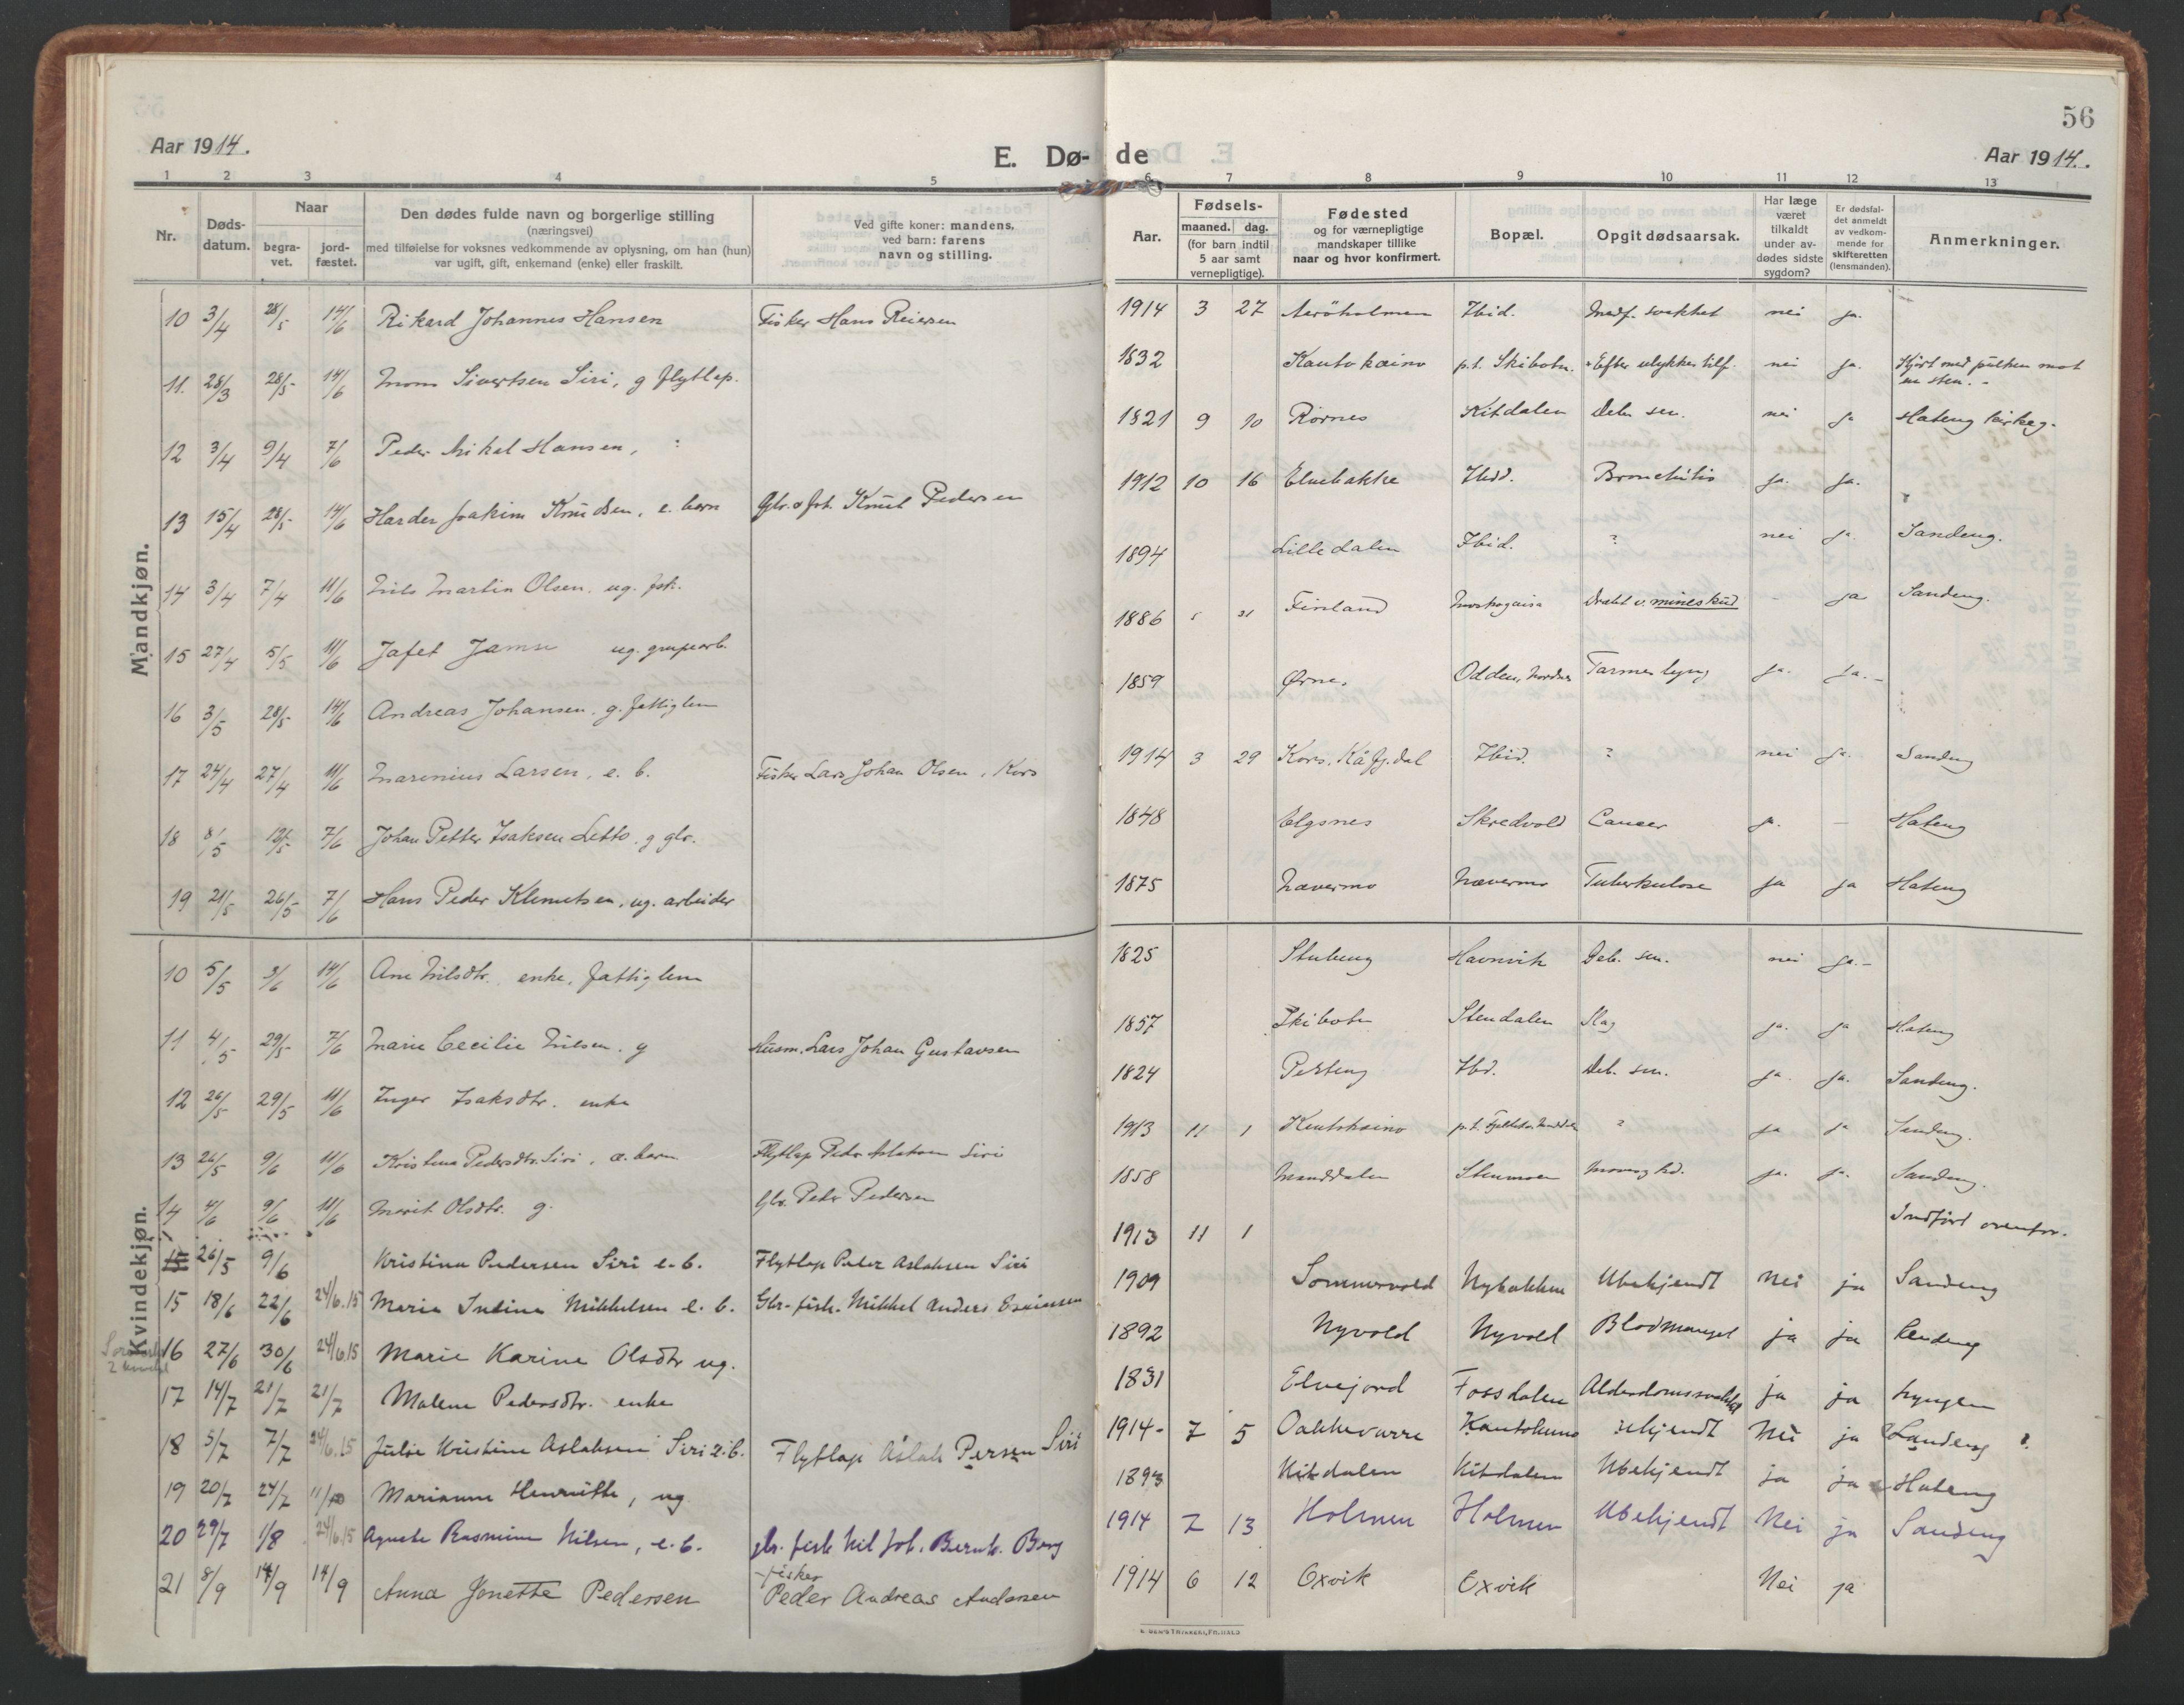 56
Aar 1914.
E. Dø- de
Aar 1914.
1 2 3 4 5 6 7 8 9 10 11 12 13
Nr.
Døds-
datum.
Naar
begra-
vet.
jord-
fæstet.
Den dødes fulde navn og borgerlige stilling
(næringsvei)
med tilføielse for voksnes vedkommende av oplysning, om han (hun)
var ugift, gift, enkemand (enke) eller fraskilt.
Ved gifte koner: mandens,
ved barn: farens
navn og stilling.
Aar.
Fødsels-
maaned. dag.
(for barn indtil
5 aar samt
vernepligtige).
Fødested
og for værnepligtige
mandskaper tillike
naar og hvor konfirmert.
Bopæl.
Opgit dødsaarsak.
Har læge
været
tilkaldt
under av-
dødes sidste
sygdom?
Er dødsfal-
det anmeldt
av vedkom-
mende for
skifteretten
(lensmanden).
Anmerkninger.
Mandkjøn.
10 3/4 28/5 14/6 Rikard Johannes Hansen Fisker Hans Reiersen 1914 3 27 Ibid. Medf. svakhet nei ja.
11. 28/3 28/5 14/6 Mons Sivertsen Siri, g flytlap. 1832 Kautokeino p.t. Skibotn. Efter ulykkestilf. nei ja. Kjørt med pulken mot
en sten. -
12 3/4 9/4 7/6 Peder Mikal Hansen, 1821 9 10 Rornes Kitdalen Deb. sen. nei ja Hateng kirkeg.
13 15/4 28/5 14/6 Harder Joakim Knudsen, e. barn Gbr. Knut Pedersen 1912 10 16 Elvebakke Ibid. Bronchitis ja. ja.
14 3/4 7/4 11/6 Nils Martin Olsen. ug. fsk. 1894 Lilledalen Ibid. ? nei ja. Sandeng.
15 27/4 5/5 11/6 Jafet ug. grupearb. 1886 31 Finland Dræbt v. mineskud - ja Sandeng.
16 3/5 28/5 14/6 Andreas Johansen. g. fattiglem 1859 Ørnes Odden, Nordnes Tarmeslyng ja. ja.-
17 24/4 27/4 11/6 Marenius Larsen, e. b. Fisker Lars Johan Olsen, Kors 1914 3 29 Kors. Kåfj.dal Ibid. ? nei ja. Sandeng
18 8/5 12/5 7/6 Johan Petter Isaksen Letto. g gbr. 1848 Elgsnes Skredvold Cancer ja. - Hateng
19 21/5 26/5 7/6 Hans Peder Klemetsen, ug. arbeider 1875 Nævermo Nævermo Tuberkulose ja ja Hateng
Kvindekjøn.
10 5/5 3/6 14/6 Ane Nilsdtr. enke, fattiglem 1825 Stubeng Havnvik Deb. sen. nei ja.-
11 4/5 29/5 7/6 Marie Cecilie Nilsen. g Husm. Lars Johan Gustavsen 1857 Skibotn Stendalen Slag ja. ja Hateng
12 26/5 29/5 11/6 Inger Isaksdtr. enke 1824 Ibd. Deb. sen. ja. ja. Sandeng.
13 26/5 9/6 11/6 Kristina Pedersdtr. Siri, e. barn Flytlap Peder Aslaksen Siri 1913 11 1 Kautokeino p.t. ? ja ja Sandeng.
14 4/6 9/6 11/6 Marit Olsdtr. g. Gbr. Peder Pedersen 1858 Manddalen Stenmoen ja. ja. Sandeng.
15 26/5 9/6 Kristina Pedersen Siri e. b. Flytlap Peder Aslaksen Siri 1913 11 1 Indført ovenfor.
15 18/6 22/6 24/6.15 Maria Indina Mikkelsen e. b. Gbr-fisk. Mikkel Anders Esaiassen 1909 Sommervold Nybakken Ubekjendt Nei ja Sandeng
16 27/6 30/6 24/6.15 Marie Karine Olsdtr ug. 1892 Nyvold Nyvold Blodmangel ja ja Sandeng
17 14/7 21/7 21/7 Malene Pedersdtr. enke 1831 Elvejord Fossdalen Alderdomssvakhet ja ja Lyngen
18 5/7 7/7 24/6.15 Julie Kristine Aslaksen Siri e. b. Flytlap Aslak Persen Siri 1914- 7 5 Oakkevarre Kautokeino ukjendt Nei ja Sandeng ?
19 20/7 24/7 Marianne Henriette, ug 1893 Kitdalen Kitdalen Ubekjendt ja ja Hateng
20 29/7 1/8 24/6.15 Agnete Rasmine Nilsen, e. b. gbr. fisk Nil Joh. Bernh. Berg 1914 7 13 Holmen Holmen Ubekjendt Nei ja Sandeng
21 8/9 14/9 14/9 Anna Jonette Pedersen fisker
Peder Andreas Andersen 1914 6 12 Oxvik Oxvik Nei ja